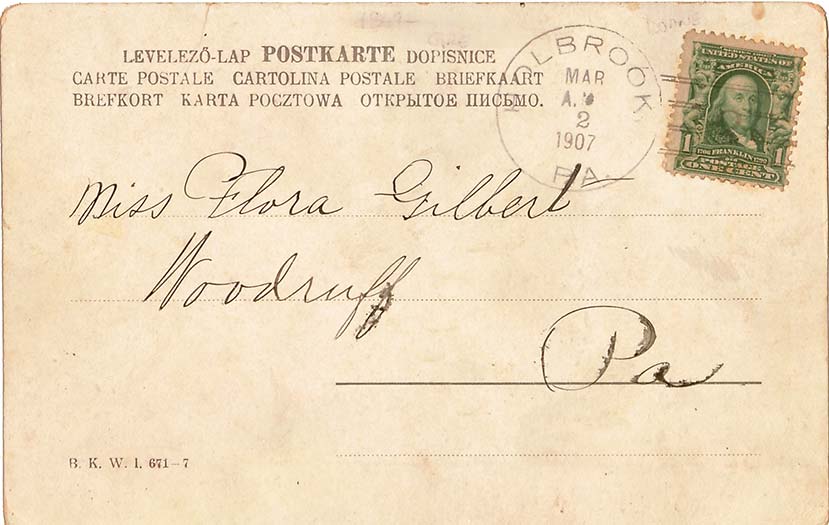 LEVELEZŐ-LAP POSTKARTE DOPISNICE
CARTE POSTALE CARTOLINA POSTALE BRIEFKAART
BREFKORT KARTA POCZTOWA ОТКРЫТОЕ ПИСЬМО.
HOLBROOK,
MAR
2
1907
PA.
UNITED STATES OF
AMERICA
1 FRANKLIN 1
POSTAGE
ONE CENT
Miss Flora Gilbert
Woodruff
Pa
B. K. W. I. 671-7